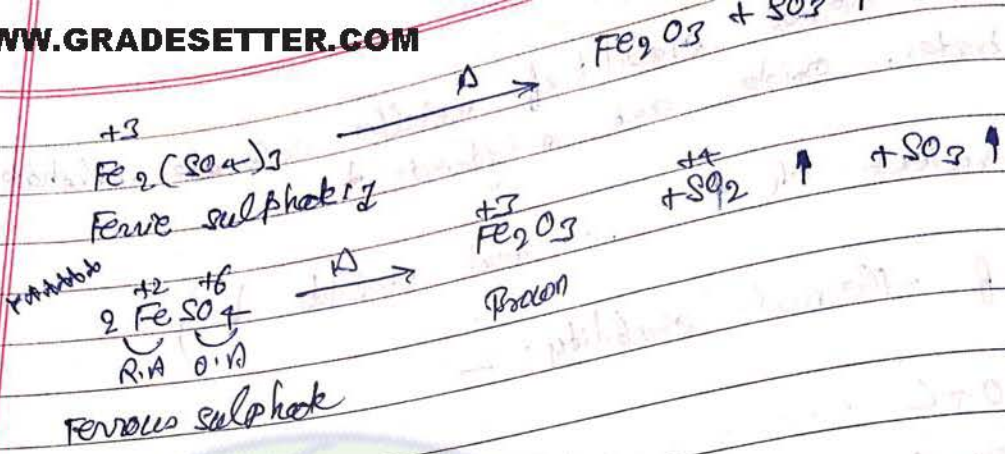 WW.GRADESETTER.COM
+3
Fe2(SO4)3 Δ → Fe2O3 + SO3 ↑
Ferric sulphate
+2 +6 +3 +4
2 FeSO4 Δ → Fe2O3 + SO2 ↑ + SO3 ↑
R.A O.A Brown
Ferrous sulphate